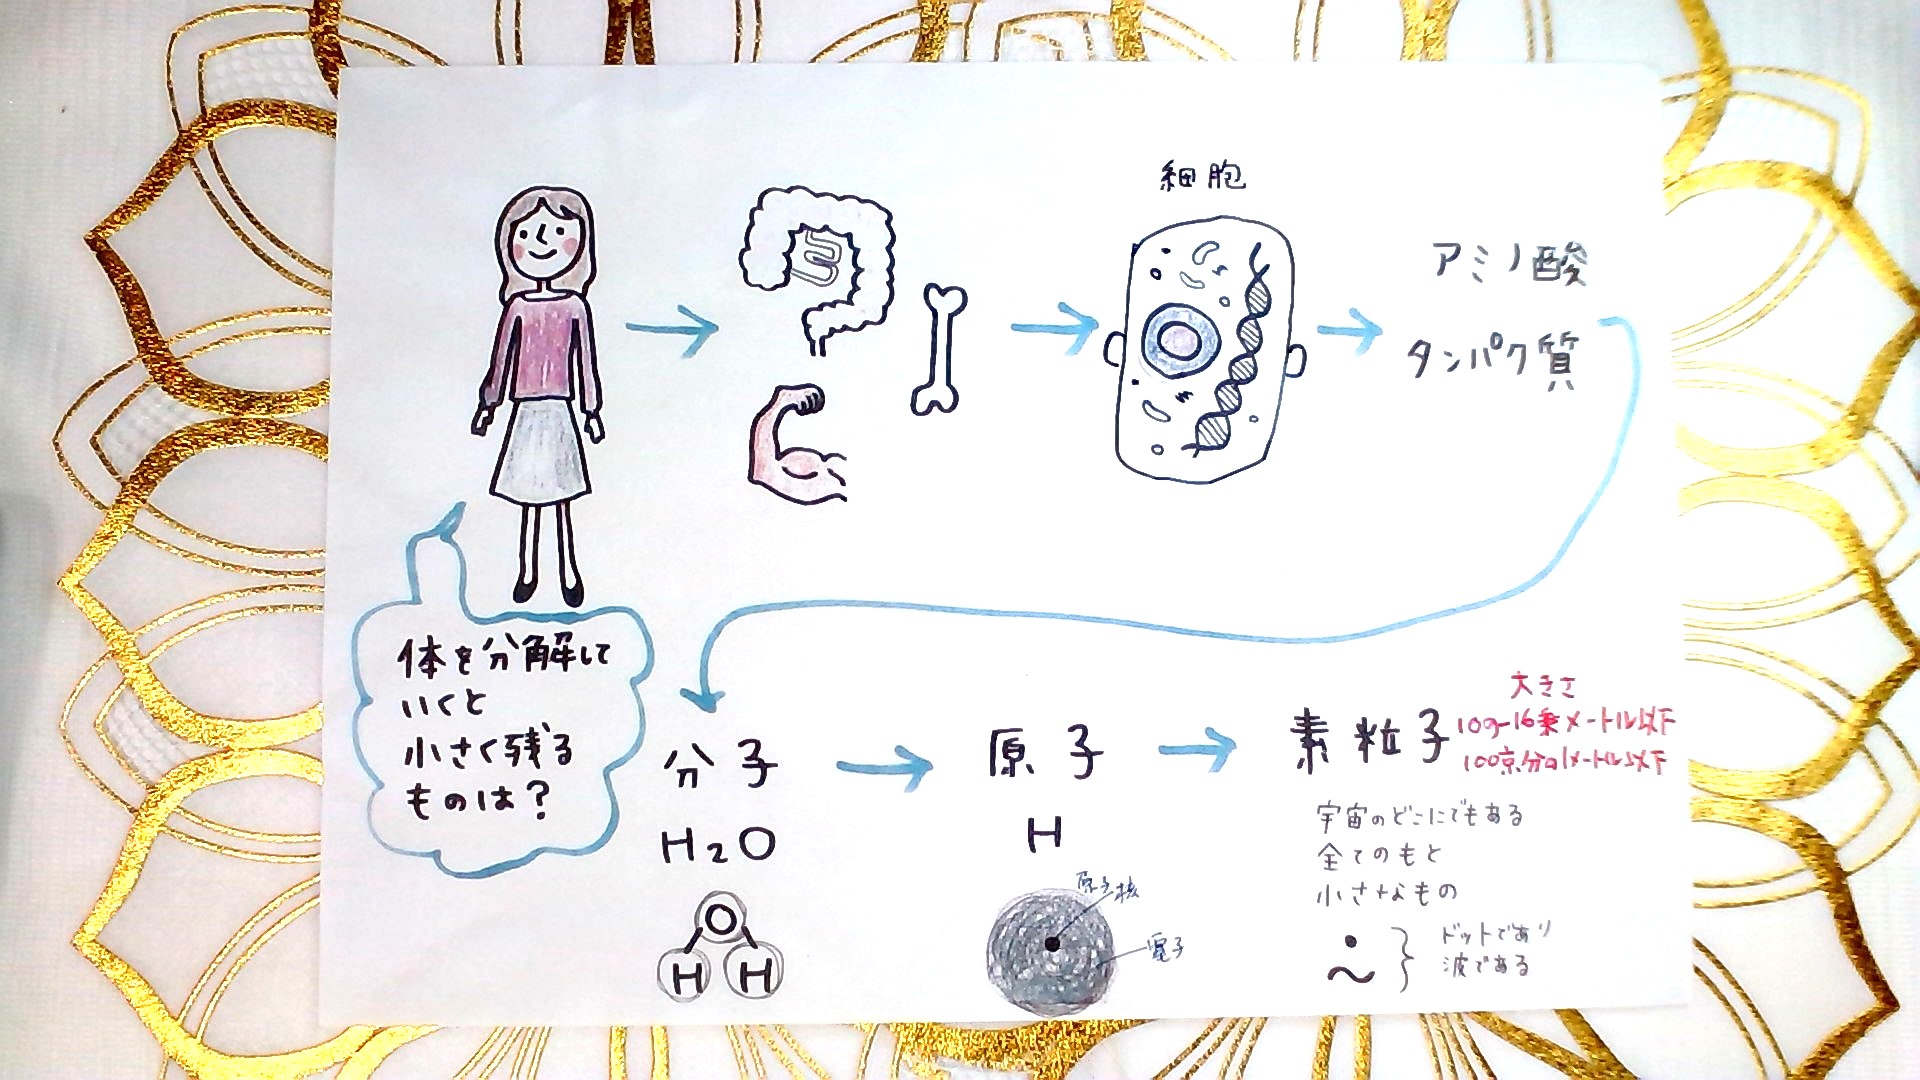 細胞
アミノ酸
タンパク質
体を分解して
いくと
小さく残る
ものは?
分子
H₂O
O
H H
原子
H
原子核
電子
素粒子
大きさ
10の-16乗メートル以下
100京分の1メートル以下
宇宙のどこにでもある
全てのもと
小さなもの
ドットであり
波である